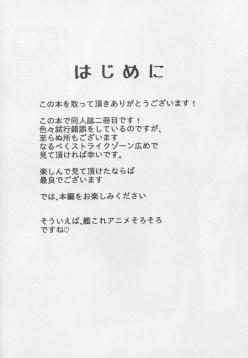 はじめに
この本を取って頂きありがとうございます！
この本で同人誌二冊目です！
色々試行錯誤をしているのですが、
至らぬ所もございます
なるべくストライクゾーン広めで
見て頂ければ幸いです。
楽しんで見て頂けたならば
最良でございます
では、本編をお楽しみください
そういえば、艦これアニメそろそろ
ですね♡